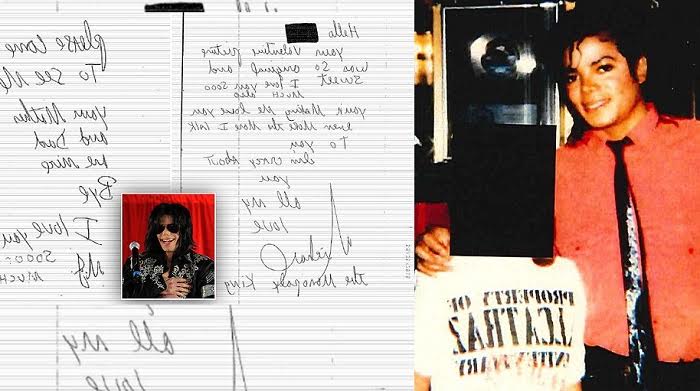 Hello
your Valentine picture
was so original and
Sweet I love you Sooo
MUCH also
your Making Me love you
even More the More I talk
To you
Im crazy About
you
all my
love
Michael
the Monopoly King
please come
To see Me
your Mother
and Dad
are nice
Bye
I love you
Sooo
MUCH
MJ
all my
love
PROPERTY OF
ALCATRAZ